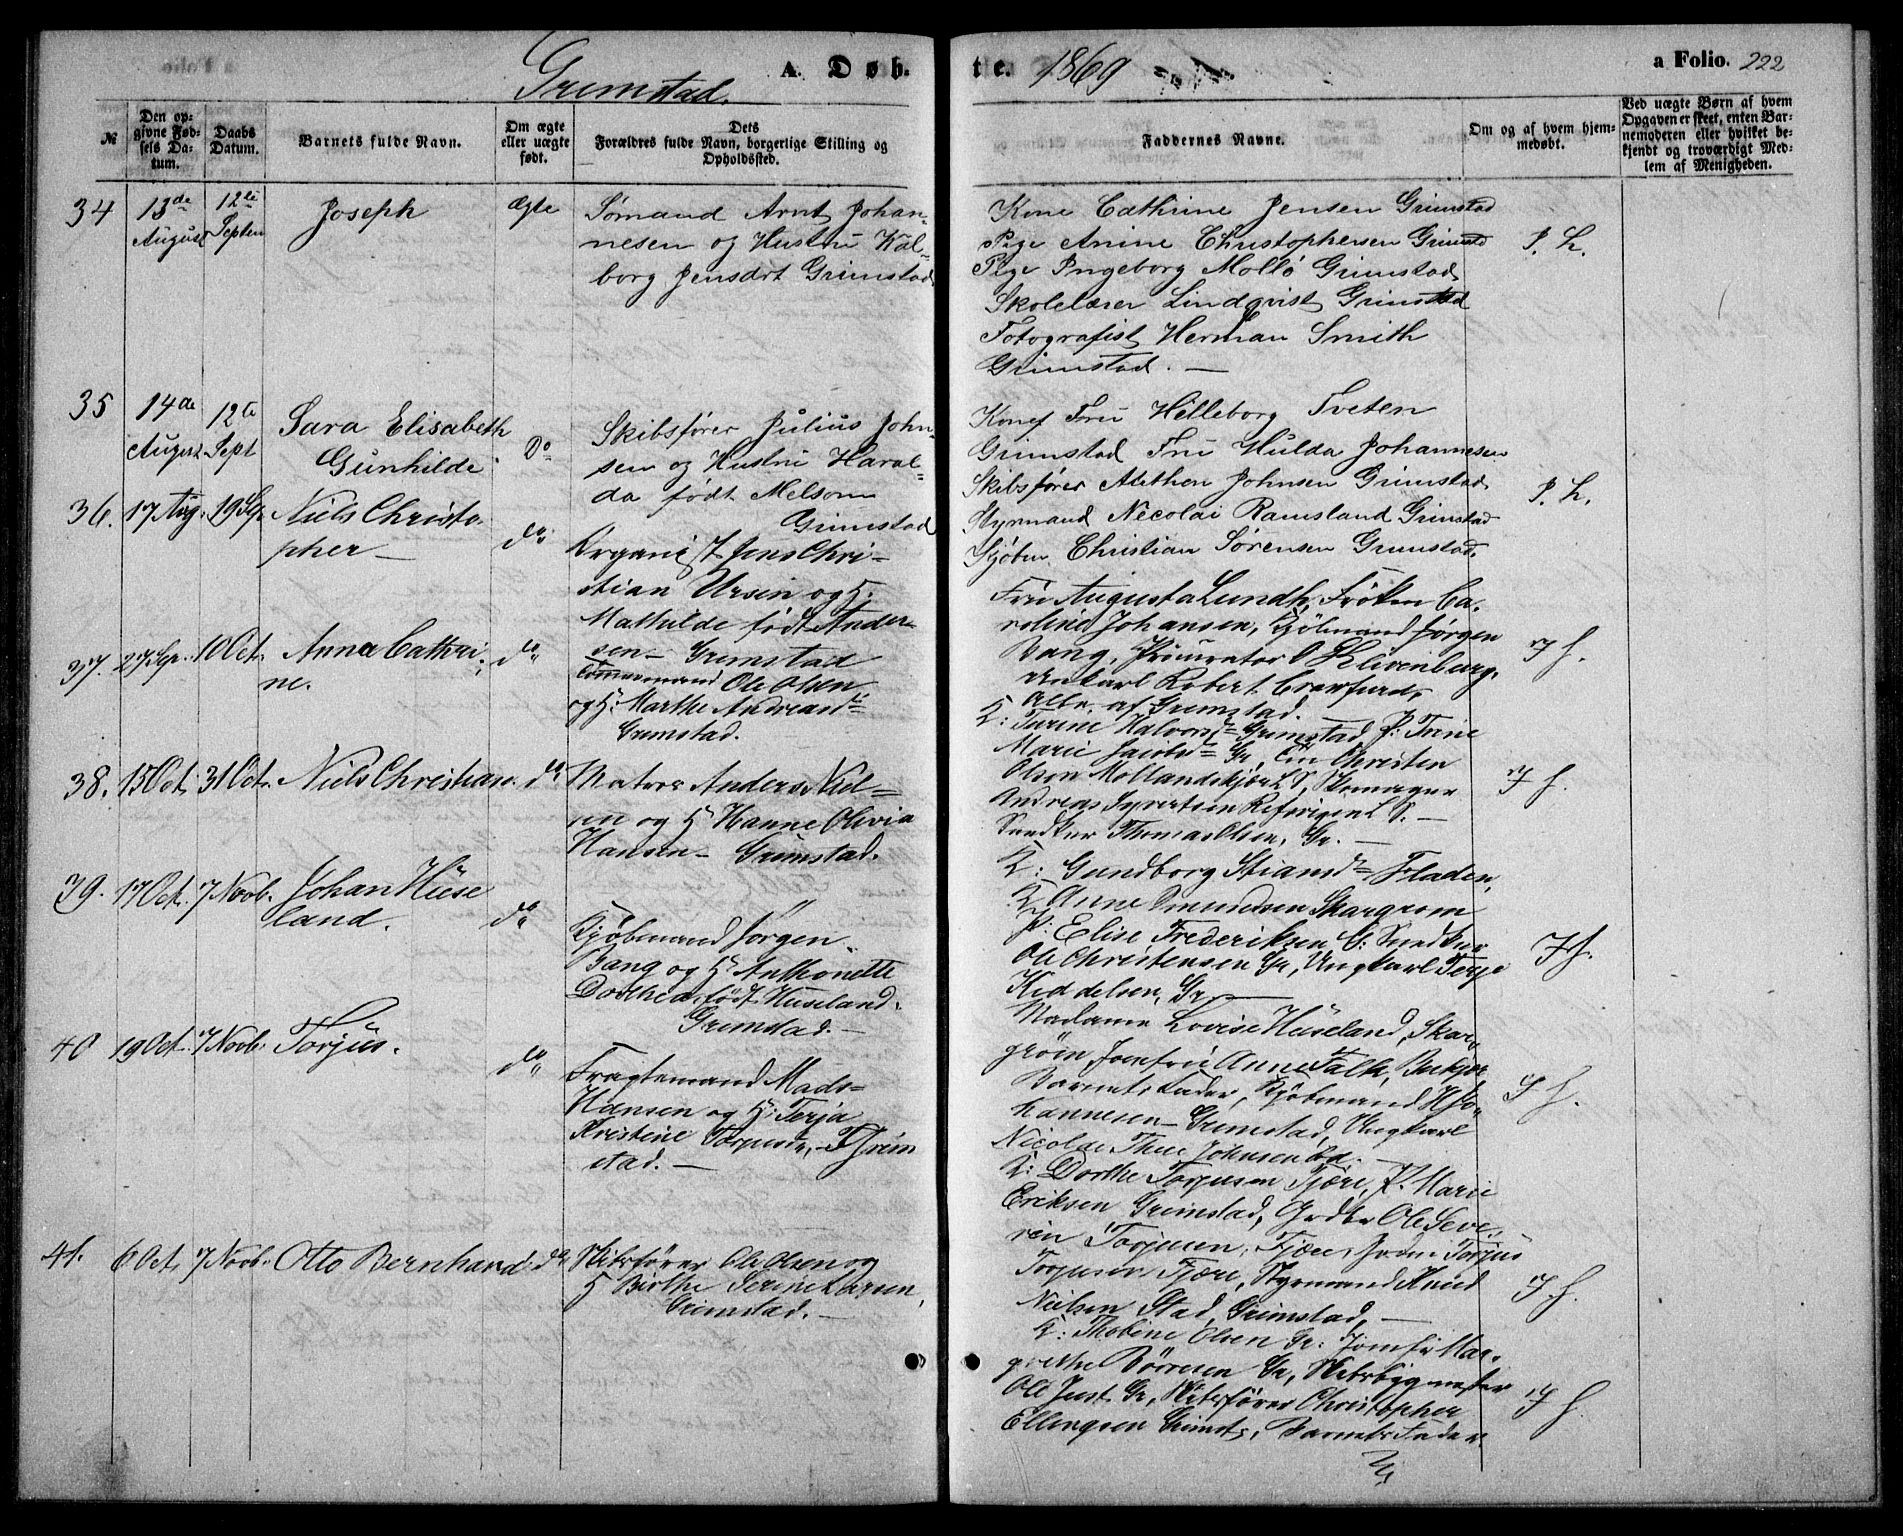 Grimstad.
A. Døb-
te. 1869
a Folio. 222
№
Den op-
givne Fød-
sels Da-
tum.
Daabs
Datum.
Barnets fulde Navn.
Om ægte
eller uægte
født.
Dets
Forældres fulde Navn, borgerlige Stilling og
Opholdssted.
Faddernes Navne.
Om og af hvem hjem-
medøbt.
Ved uægte Børn af hvem
Opgaven er skeet, enten Bar-
nemoderen eller hvilket be-
kjendt og troværdigt Med-
lem af Menigheden.
34
13de
August
12te
Septem
Joseph
Ægte
Sømand Arnt Johan-
nesen og Hustru Kal-
borg Jensdrt Grimstad
Kone Cathrine Jensen Grimstad
Pige Anine Christophersen Grimstd
Pige Ingeborg Mollø Grimstad
Skolelærer Lindqvist Grimstad
Fotografist Herman Smith
Grimstad. —
35
14de
August
12te
Sept
Sara Elisabeth
Gunhilde
Do
Skibsfører Julius John-
sen og Hustru Haral-
da født Melsom
Grimstad
Fru Hilleborg Tveten
Grimstad Fru Hulda Johannesen
Skibsfører Johnsen Grimstad
Styrmand Necolai Ramsland Grimstad
Christian Sørensen Grimstad.
36.
17 Aug.
19 Sep.
Niels Christo-
pher —
do
Organist Jens Chri-
stian Ursin og H.
Mathilde født Ander-
sen — Grimstad
Fru Augusta Lundh, Frøken Ca-
roline Johansen, Kjøbmand Jørgen
Bang, Procurator O
Ungkarl Robert Crawfurd,
Alle af Grimstad.
37.
27 Sep.
10 Oct.
Anna Cathri-
ne.
do
Tømmermand Ole Olsen
og H: Marthe Andreasd
Grimstad.
K: Halvorsd Grimstad P: Trine
Marie Jacobsd Gr,
Olsen
Andreas
Snedker Thomas Olsen, Gr. —
38.
15 Oct.
31 Oct.
Niels Christian.
do
Matros Anders Niel-
sen og H Hanne Olivia
Hansen — Grimstad.
K: Gundborg Fladen,
K Anne
P: Elise Frederiksen
Ole Christensen Gr, Ungkarl Terje
Kiddelsen, Gr —
39.
17 Oct.
7 Novb.
Johan Huse
land.
do
Kjøbmand Jørgen
Bang og H Anthonette
Dorthea født Huseland.
Grimstad. —
Madame Lovise Huseland, Skar-
grøm Jomfru Anne Falk,
Barnets Fader, Kjøbmand H Jo-
hannesen — Grimstad, Ungkarl
Nicolai Johnsen
40
19 Oct.
7 Novb.
Torjus.
do
Fragtemand Mads
Hansen og H: Terja
Kristine Grim
stad. —
K: Dorthe Torjusen Fjære, P. Marie
Eriksen Grimstad, Ole Seve-
rin Torjusen, Fjære, Torjus
Torjusen Fjære, Styrmand Knud
Nielsen Stad, Grimstad, —
41.
6 Oct.
7 Novb.
Otto Bernhard.
do
Skibsfører Ole Olsen og
H Birthe Serine Larsen,
Grimstad. —
K: Thobine Olsen Gr: Jomfr Mar-
grethe Gr, Skibsbygmester
Ole Just Gr, Skibsfører Christopher
Ellingsen Grimst, Barnets Fader.